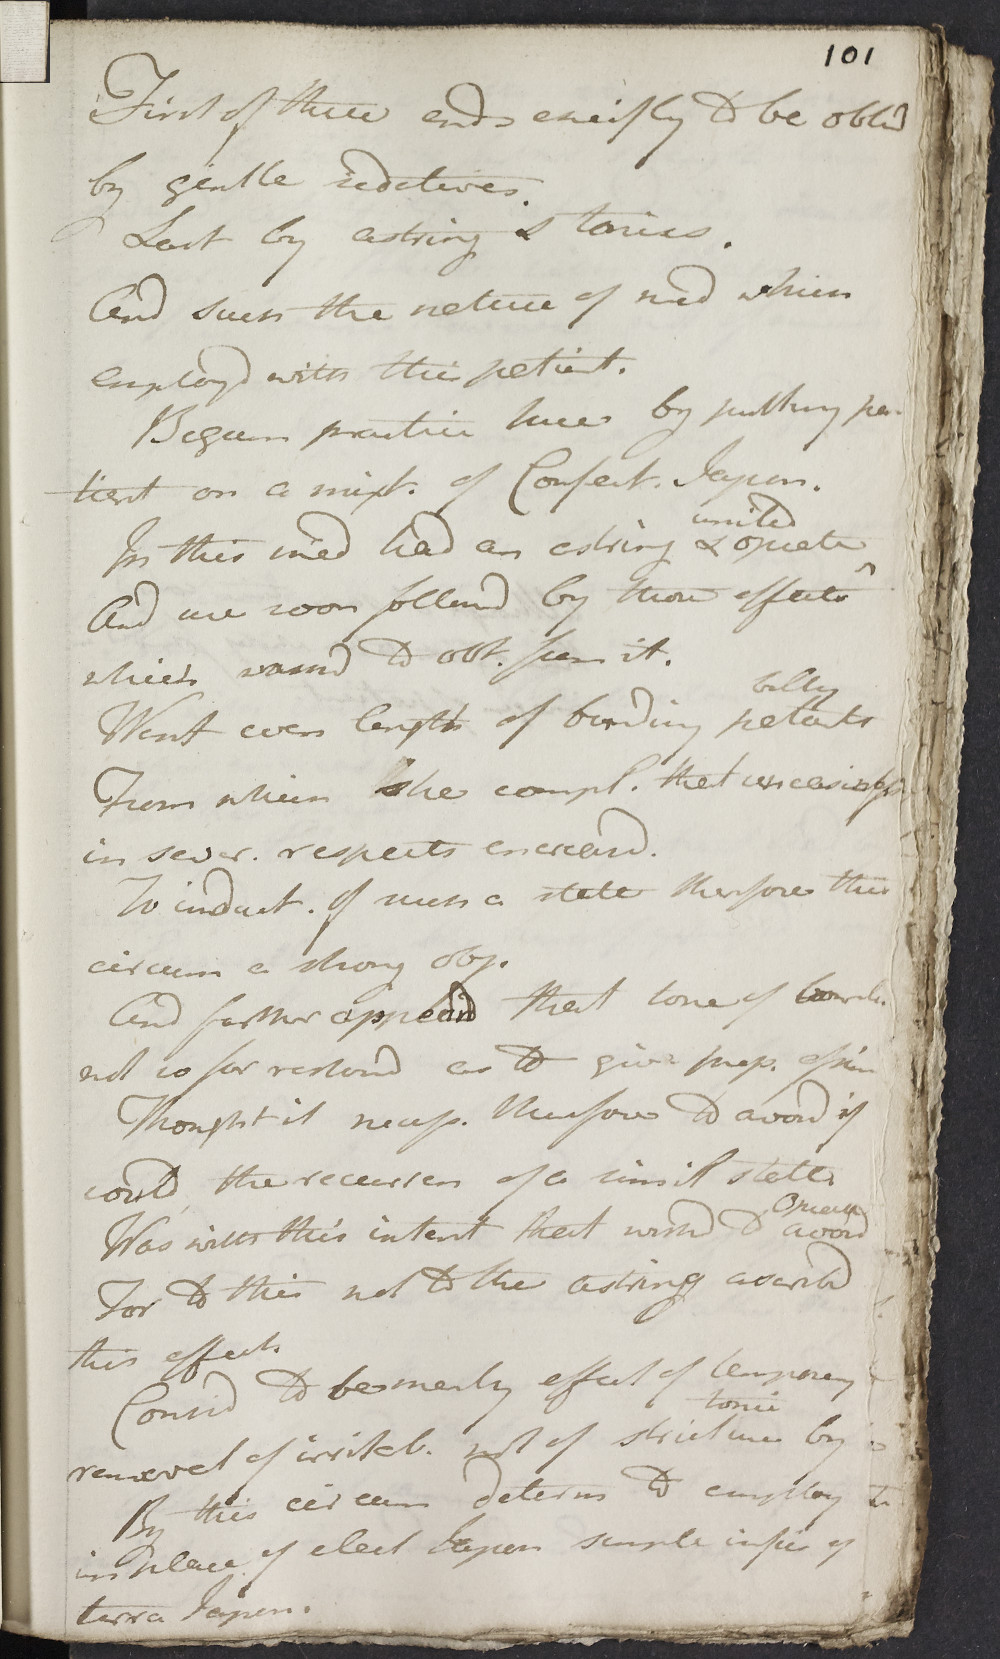 101
First of these ends chiefly to be obtd
by gentle sedatives.
Last by astring & tonics.
And such the nature of med which
employd with this patient.
Begun practice here by putting pa-
tient on a mixt. of Confect. Japon.
In this med had an astring & opiate united
And we soon followd by those effects
which wishd to obt. from it.
Went even length of binding patients belly
From which she compl. that uneasiness
in sever. respects encreasd.
To induct. of such a state therefore this
circum a strong obj.
And farther appeard that tone of bowels
not so far restord as to give prop.
Thought it necess. therefore to avoid if
could, the recurren of a simil state
Was with this intent that wishd to avoid Opium
For to this not to the astring ascribd
this effect.
Consid to be merely effect of temporary
removal of irritab. not of tonic stricture by
By this circum determ to employ
in place of elect Japon simple infus of
terra Japon.